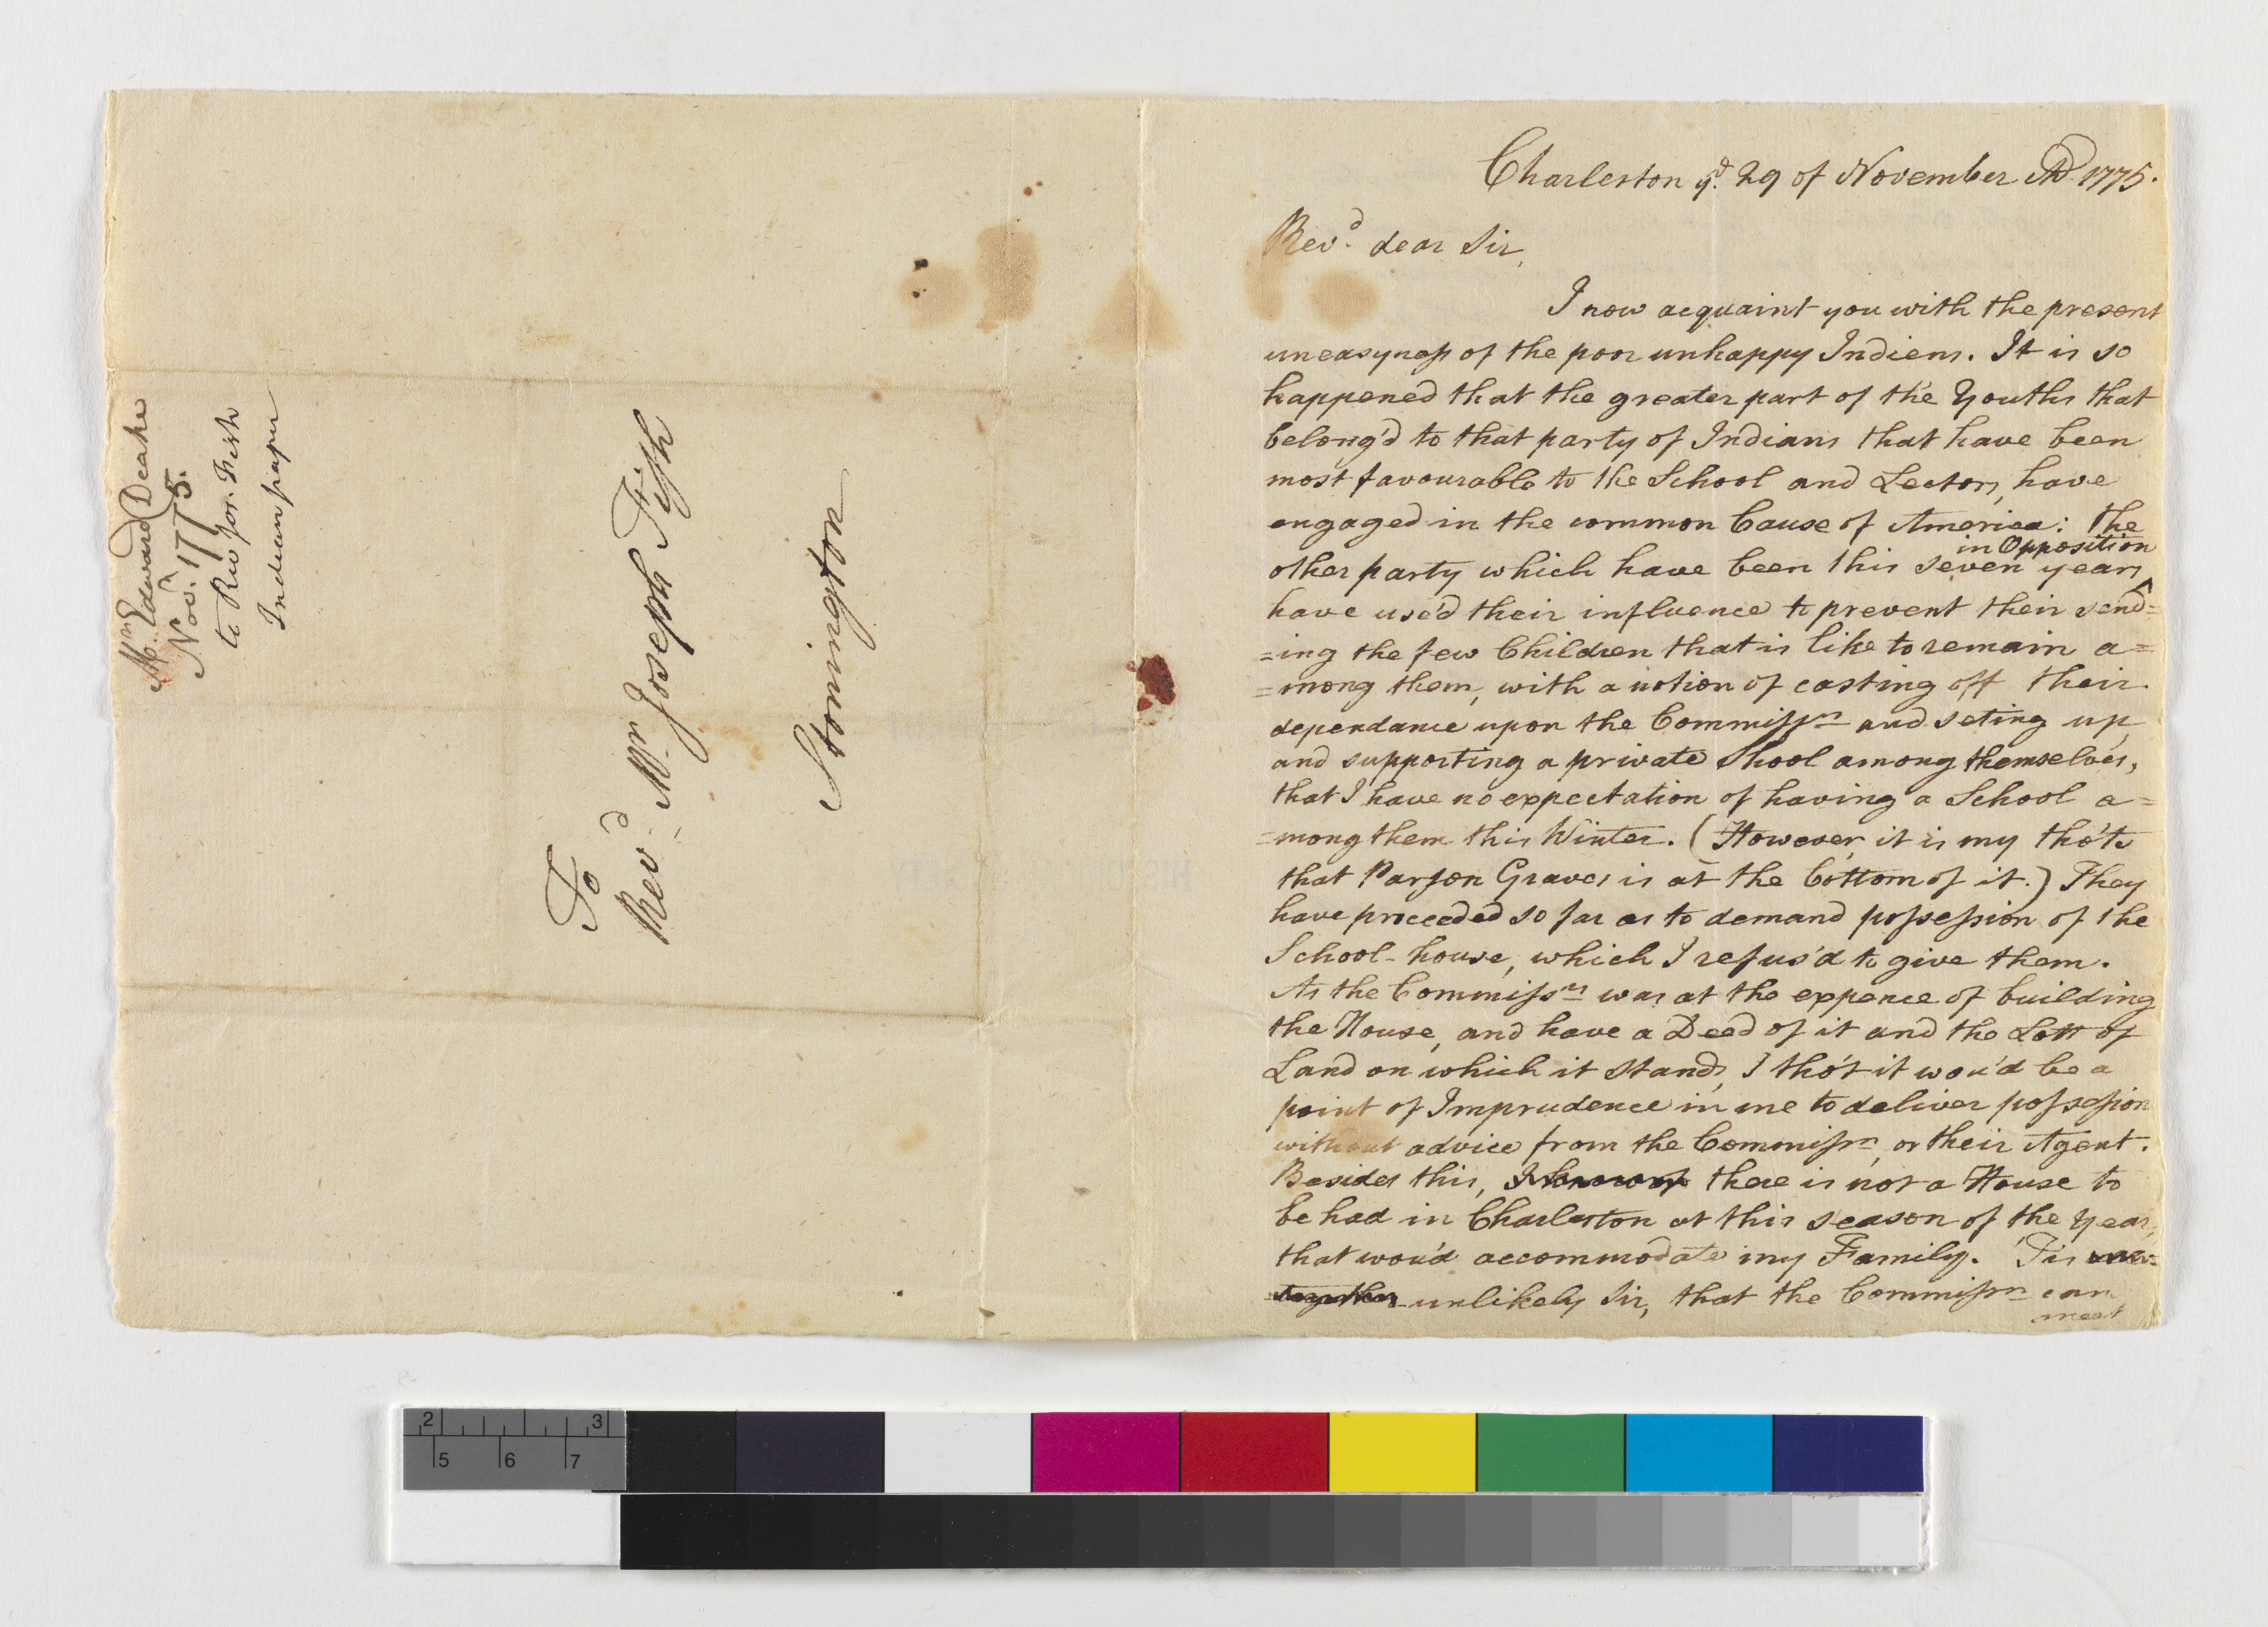 Mr. Edward Deake
Novr. 1775.
to Rev Jos. Fish
Indian paper
To
Revd. Mr. Joseph Fish
Stonington
Charleston yd. 29 of November AD. 1775.
Revd. dear Sir,
I now acquaint you with the present
uneasyness of the poor unhappy Indiens. It is so
happened that the greater part of the Youths that
belong'd to that party of Indians that have been
most favourable to the School and Lectors, have
engaged in the common Cause of America: the
in Opposition
other party which have been this seven years ^
have use'd their influence to prevent their send=
=ing the few Children that is like to remain a=
=mong them, with a notion of casting off their
dependance upon the Commissrs and seting up,
and supporting a private Shool among themselves,
that I have no expectation of having a School a=
=mong them this Winter. (However, it is my tho'ts
that Parson Graves is at the bottom of it.) They
have proceeded so far as to demand possession of the
School-house, which I refus'd to give them.
As the Commissrs was at the expence of building
the House, and have a Deed of it and the Lott of
Land on which it stands, I tho't it wou'd be a
point of Imprudence in me to deliver possession
without advice from the Commissrs, or their Agent.
Besides this, there is not a House to
be had in Charleston at this season of the Year,
that wou'd accommodate my Family. Tis
unlikely Sir, that the Commissrs can
meet
2 3
5 6 7